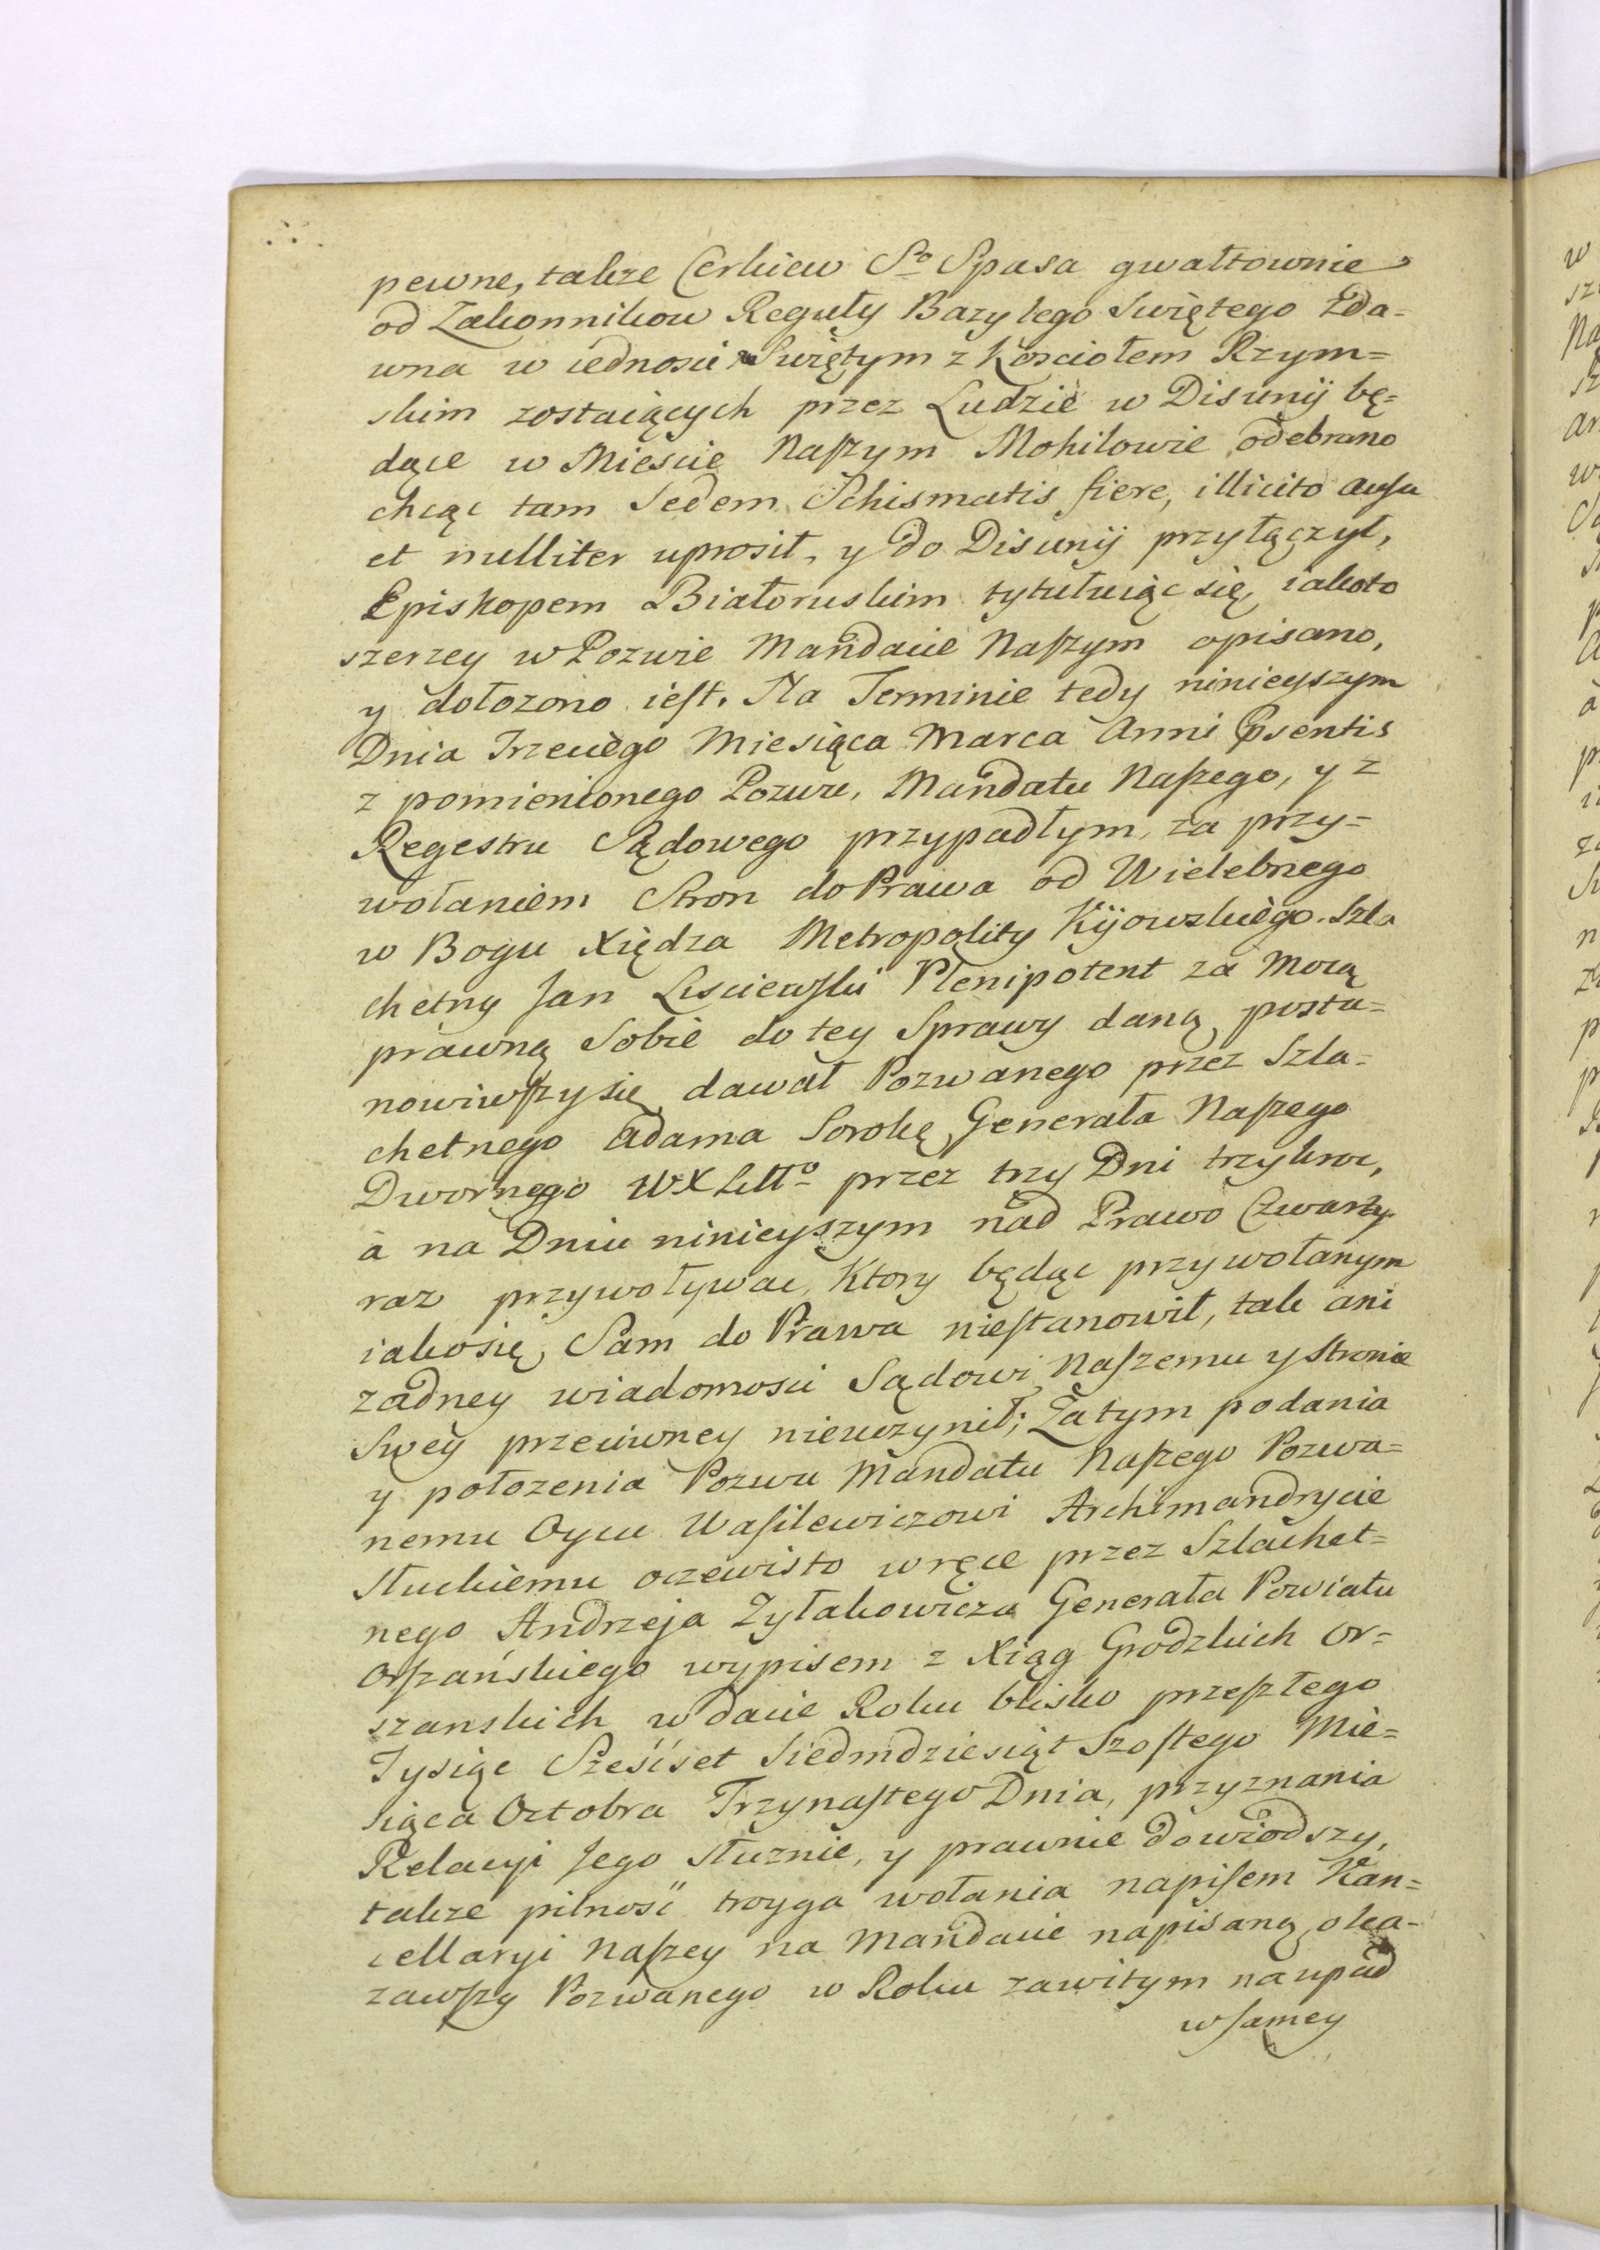 pewne, także Cerkiew S<sup>o</sup> Spasa gwałtownie
od Zakonnikow Reguły Bazylego Swiętego Zda=
wna w iednosci Swiętym z Kosciołem Rzym=
skim zostaiących przez Ludzie w Disunij bę=
dące w Miescie Naszym Mohilowie odebrano
chcąc tam Sedem Schismatis fiere, illicito ausu
et nulliter uprosił, y do Disunij przyłączył,
Episkopem Białoruskim tytułuiąc się, iakoto
szerzey w Pozwie Mandacie Naszym opisano,
y dołozono iest. Na Terminie tedy ninieyszym
Dnia Trzeciego Miesiąca Marca Anni Psentis
z pomienionego Pozwu, Mandatu Naszego, y z
Regestru Sądowego przypadłym, za przy=
wołaniem Stron do Prawa od Wielebnego
w Bogu Xiędza Metropolity Kijowskiego. Szla
chetny Jan Lisciewski Plenipotent za Mocą
prawną Sobie do tey Sprawy daną, posta=
nowiwszy się, dawał Pozwanego przez Szla=
chetnego Adama Sorokę Generała Naszego
Dwornego WXLitt<sup>o</sup> przez trzy Dni trzykroc,
a na Dniu ninieyszym nad Prawo Czwarty
raz przywoływac, Ktory będąc przywołanym
iako się, Sam do Prawa niestanowił, tak ani
zadney wiadomosci Sądowi Naszemu y stronie
Swey przeciwney nieuczynił; Zatym podania
y połozenia Pozwu Mandatu Naszego Pozwa=
nemu Oycu Wasilewiczowi Archimandrycie
Słuckiemu oczewisto w ręce przez Szlachet=
nego Andrzeja Zyłakowicza Generała Powiatu
Orszańskiego wypisem z Xiąg Grodzkich Or=
szanskich w dacie Roku blisko przeszłego
Tysiąc Sześćset Siedmdziesiąt Szostego Mie=
siąca Octobra Trzynastego Dnia, przyznania
Relacyi Jego słuznie, y prawnie dowiodszy,
także pilność troyga wołania napisem Kan=
cellaryi Naszey na Mandacie napisaną, oka=
zawszy Pozwanego w Roku zawitym na upad
w samey